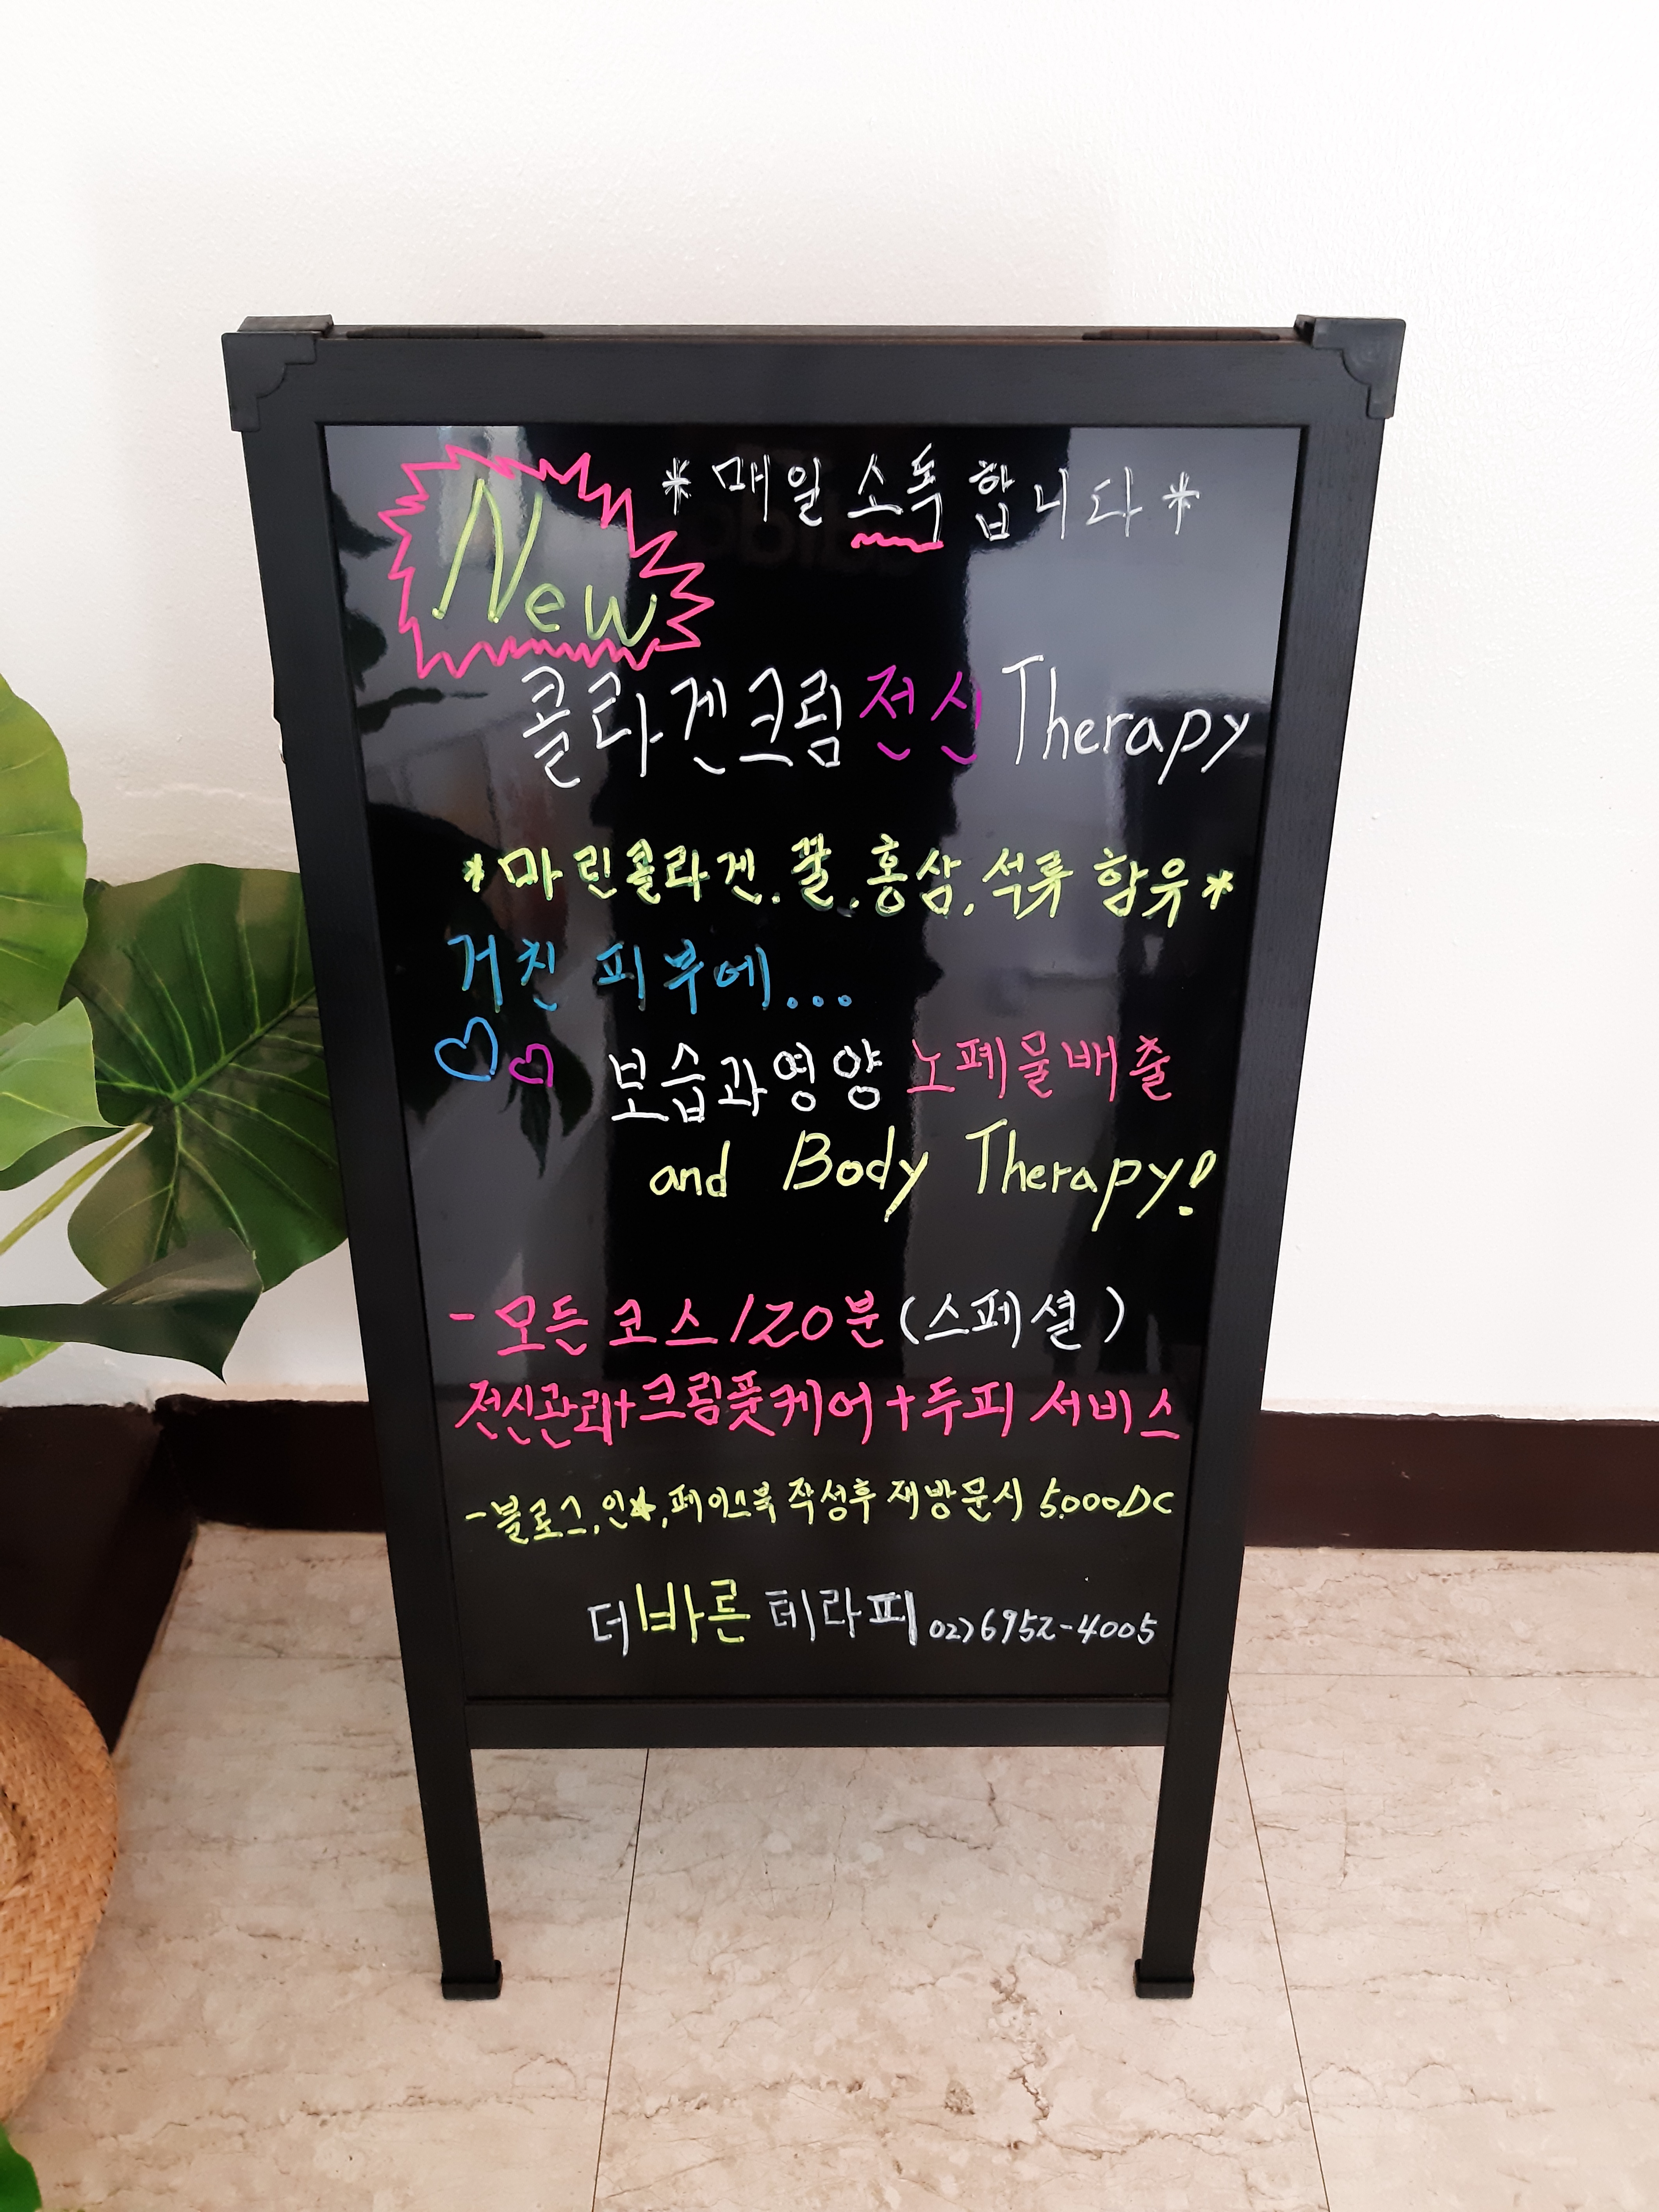 * 매일 소독 합니다 *
New
콜라겐크림전신 Therapy
* 마린콜라겐. 꿀. 홍삼. 석류 함유 *
거친 피부에...
보습과영양 노폐물배출
and Body Therapy!
- 모든 코스 120분 (스페셜)
전신관리+크림풋케어+두피 서비스
- 블로그, 인★, 페이스북 작성후 재방문시 5,000DC
더바른 테라피 02)6952-4005